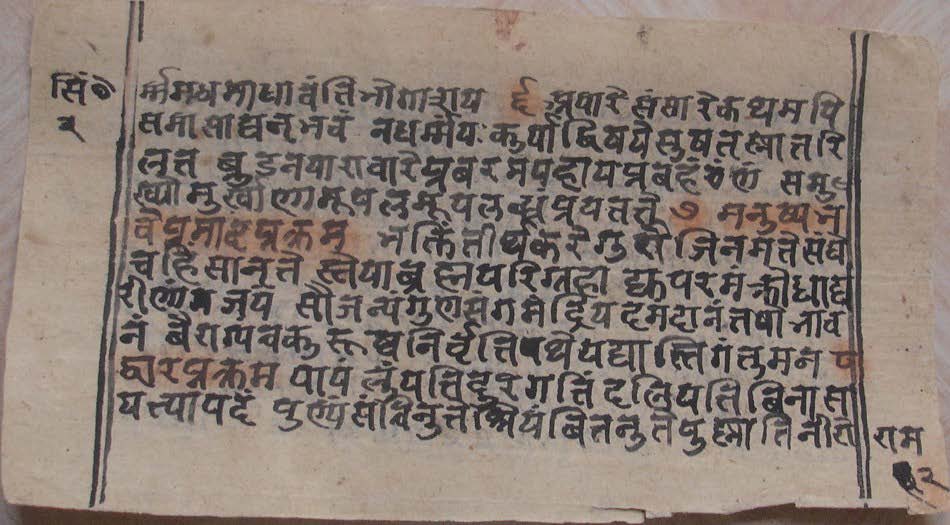 सिं०
२
र्म्ममधमाधावंति भोगाराय ६ अपारे संसारे कथमपि
समासाद्य नृभवं नधर्म्मंयः कुर्याद्विषयसुषतृष्मातरि
लतः ब्रुडनपारावारे प्रवरमपहायप्रवहणं समु
ख्यो मुर्खाणामुपलमुपलब्धुप्रयतते ७ मनुष्यभ
वैप्रमादप्रक्रम भक्तिंतीर्थकरे गुरौ जिनमते संघे
च हिंसानृत स्तेयाब्रह्मपरिग्रहा द्युपरमंक्रोधाद्य
रीणांजयं सौजन्यगुणसंगमंद्रियदमदानंतपोभाव
नं वैराग्यंचकुरूष्वनिर्वृत्तिपदेयद्यास्तिगंतुमनः
द्वारप्रक्रम पापं लुंपतिदुरगतिं दलियति बिनासा
यत्यापदं पुण्यं संचिनुते श्रियं बितनुते पुस्मातिनीरो
राम
२